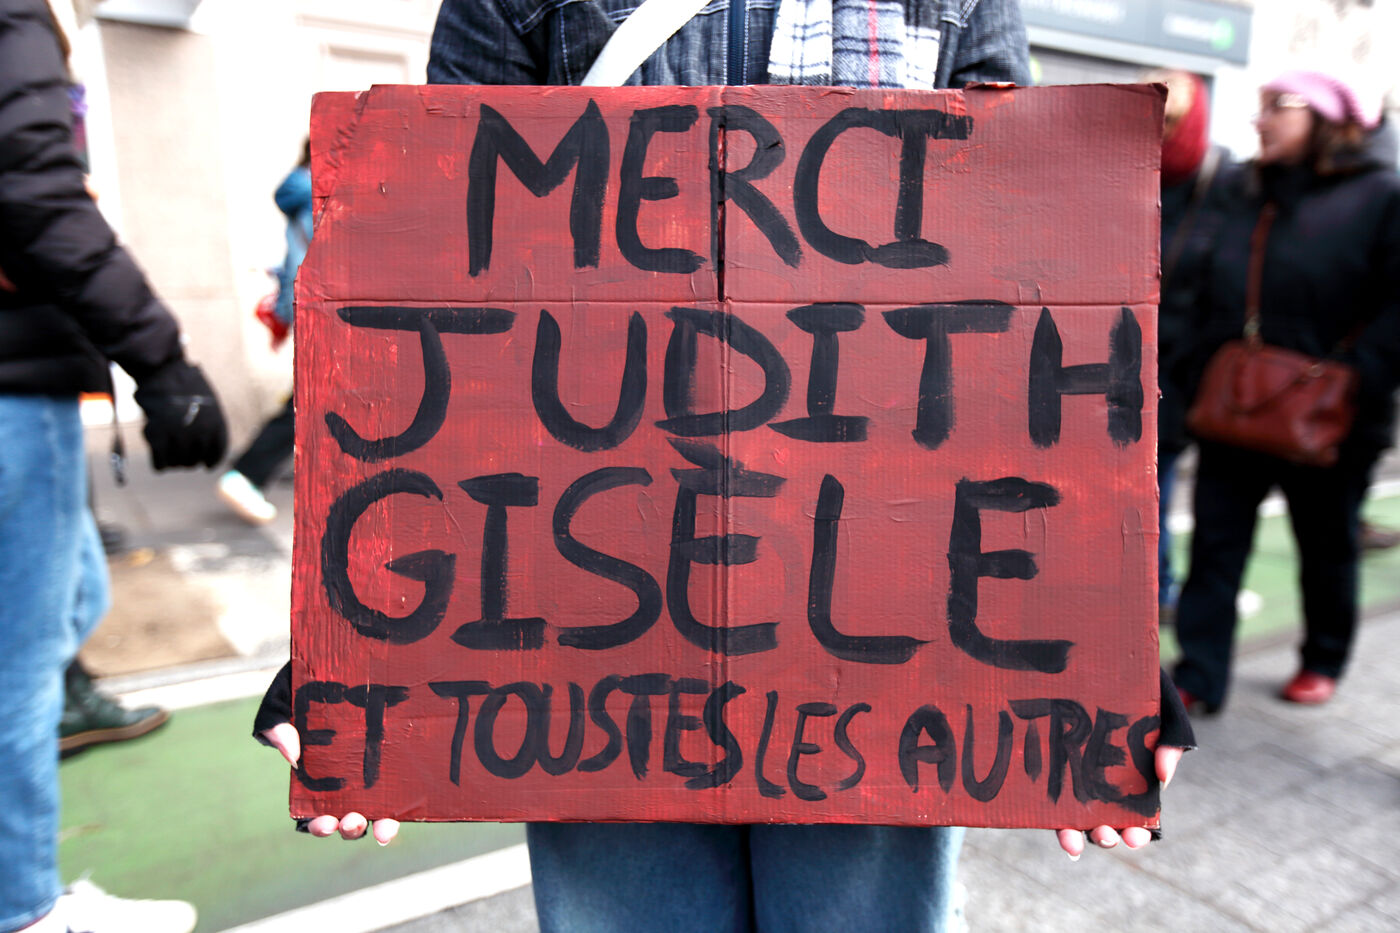 MERCI
JUDITH
GISÈLE
ET TOUSTES LES AUTRES